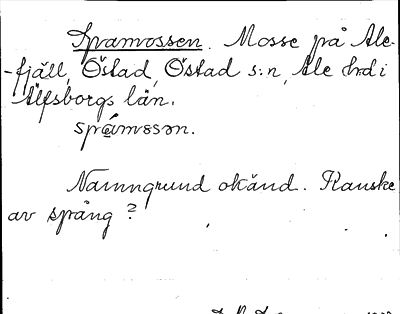 Spamossen. Mosse på Ale-
-fjäll, Östad, Östad s:n, Ale hd i
Älfsborgs län.
språmɷsən.
Namngrund okänd. Kanske
av spång?